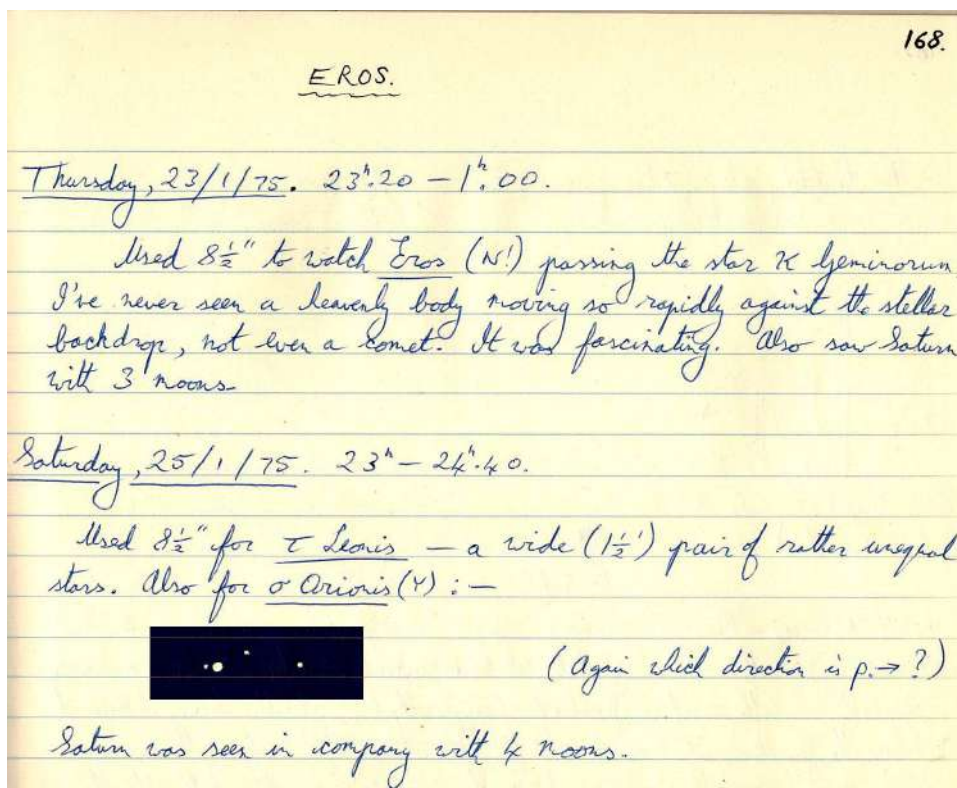 168.
EROS.
Thursday, 23/1/75. 23ʰ.20 – 1ʰ.00.
Used 8½" to watch Eros (N!) passing the star κ Geminorum.
I've never seen a heavenly body moving so rapidly against the stellar
backdrop, not even a comet. It was fascinating. Also saw Saturn
with 3 moons.
Saturday, 25/1/75. 23ʰ – 24ʰ.40.
Used 8½" for τ Leonis — a wide (1½') pair of rather unequal
stars. Also for σ Orionis (Y) :—
(Again which direction is p. → ?)
Saturn was seen in company with 4 moons.